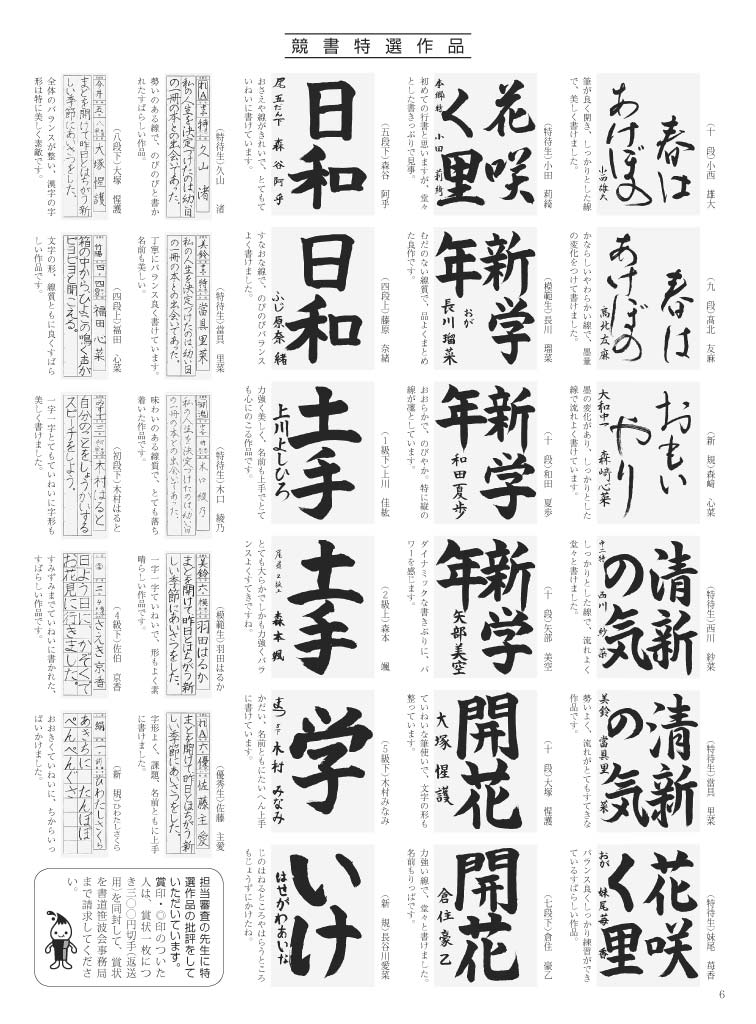 競書特選作品
春は
あけぼの
小西雄大
（十　段）小西　雄大
筆が良く開き、しっかりとした線
で、美しく書けました。
春は
あけぼの
髙北友麻
（九　段）髙北　友麻
かならしいやわらかい線で、墨量
の変化をつけて書けました。
おもい
やり
大和中一　森﨑心菜
（新　規）森﨑　心菜
墨の変化があり、しっかりとした
線で流れよく書けています。
清新
の気
中二特　西川紗菜
（特待生）西川　紗菜
しっかりとした線で、流れよく
堂々と書けました。
清新
の気
美鈴　當具里菜
（特待生）當具　里菜
勢いよく、流れがとてもすてきな
作品です。
花咲
く里
おが　妹尾苺香
（特待生）妹尾　苺香
バランス良くしっかり練習ができ
ているすばらしい作品。
花咲
く里
本郷特　小田莉綺
（特待生）小田　莉綺
初めての行書と思いますが、堂々
とした書きっぷりで見事。
新学
年
おが　長川瑠菜
（模範生）長川　瑠菜
むだのない線質で、品よくまとめ
た良作です。
新学
年
和田夏歩
（十　段）和田　夏歩
おおらかで、のびやか。特に縦の
線が凜としています。
新学
年
矢部美空
（十　段）矢部　美空
ダイナミックな書きぶりに、パ
ワーを感じます。
開花
大塚惺護
（十　段）大塚　惺護
ていねいな筆使いで、文字の形も
整っています。
開花
倉住豪乙
（七段下）倉住　豪乙
力強い線で、堂々と書けました。
名前もりっぱです。
日和
尾五だん下　森谷阿乎
（五段下）森谷　阿乎
おさえや線がきれいで、とてもて
いねいに書けています。
日和
ふじ原奈緒
（四段上）藤原　奈緒
すなおな線で、のびのびバランス
よく書けました。
土手
上川よしひろ
（１級下）上川　佳紘
力強く美しく、名前も上手でとて
も心にのこる作品です。
土手
尾道２級上　森本颯
（２級上）森本　颯
とても大らかでしかも力強くバラ
ンスよくすてきですね。
学
まつ５下　木村みなみ
（５級下）木村みなみ
かだい、名前ともにたいへん上手
に書けています。
いけ
はせがわあいな
（新　規）長谷川愛菜
じのはねるところやはらうところ
もじょうずにかけたね。
れA　中３特　久山渚
私の人生を決定づけたのは幼い日
の一冊の本との出会いであった。
（特待生）久山　渚
勢いのある線で、のびのびと書か
れたすばらしい作品。
美鈴　中３特　當具里菜
私の人生を決定づけたのは幼い日
の一冊の本との出会いであった。
（特待生）當具　里菜
丁寧にバランス良く書けています。
名前も美しい。
木口綾乃
私の人生を決定づけたのは幼い日
の一冊の本との出会いであった。
（特待生）木口　綾乃
味わいのある線質で、とても落ち
着いた作品です。
美鈴　六　模　羽田はるか
まどを開けて昨日とはちがう新
しい季節にあいさつをした。
（模範生）羽田はるか
一字一字ていねいで、形もよく素
晴らしい作品です。
れA　六　優　佐藤主愛
まどを開けて昨日とはちがう新
しい季節にあいさつをした。
（優秀生）佐藤　主愛
字形よく、課題、名前ともに上手
に書けました。
今井　五　大塚惺護
まどを開けて昨日とはちがう新
しい季節にあいさつをした。
（八段下）大塚　惺護
全体のバランスが整い、漢字の字
形は特に美しく素敵です。
四　四段上　福田心菜
箱の中から、ひよこの鳴く声が
ピヨピヨと聞こえる。
（四段上）福田　心菜
文字の形、線質ともに良くすばら
しい作品です。
みす　三　木村はると
自分のことをしょうかいする
スピーチをしよう。
（初段下）木村はると
一字一字とてもていねいに字形も
美しく書けました。
さえき京香
日よう日に、かぞくで
お花見に行きました。
（４級下）佐伯　京香
すみずみまでていねいに書かれた、
すばらしい作品です。
ひわたしさくら
あきちに　たんぽぽ
ぺんぺんぐさ
（新　規）ひわたしさくら
おおきくていねいに、ちからいっ
ぱいかけました。
担当審査の先生に特
選作品の批評をして
いただいています。
賞印・◎印のついた
人は、賞状一枚につ
き三〇〇円切手（返送
用）を同封して、賞状
を書道笹波会事務局
まで請求してくださ
い。
6